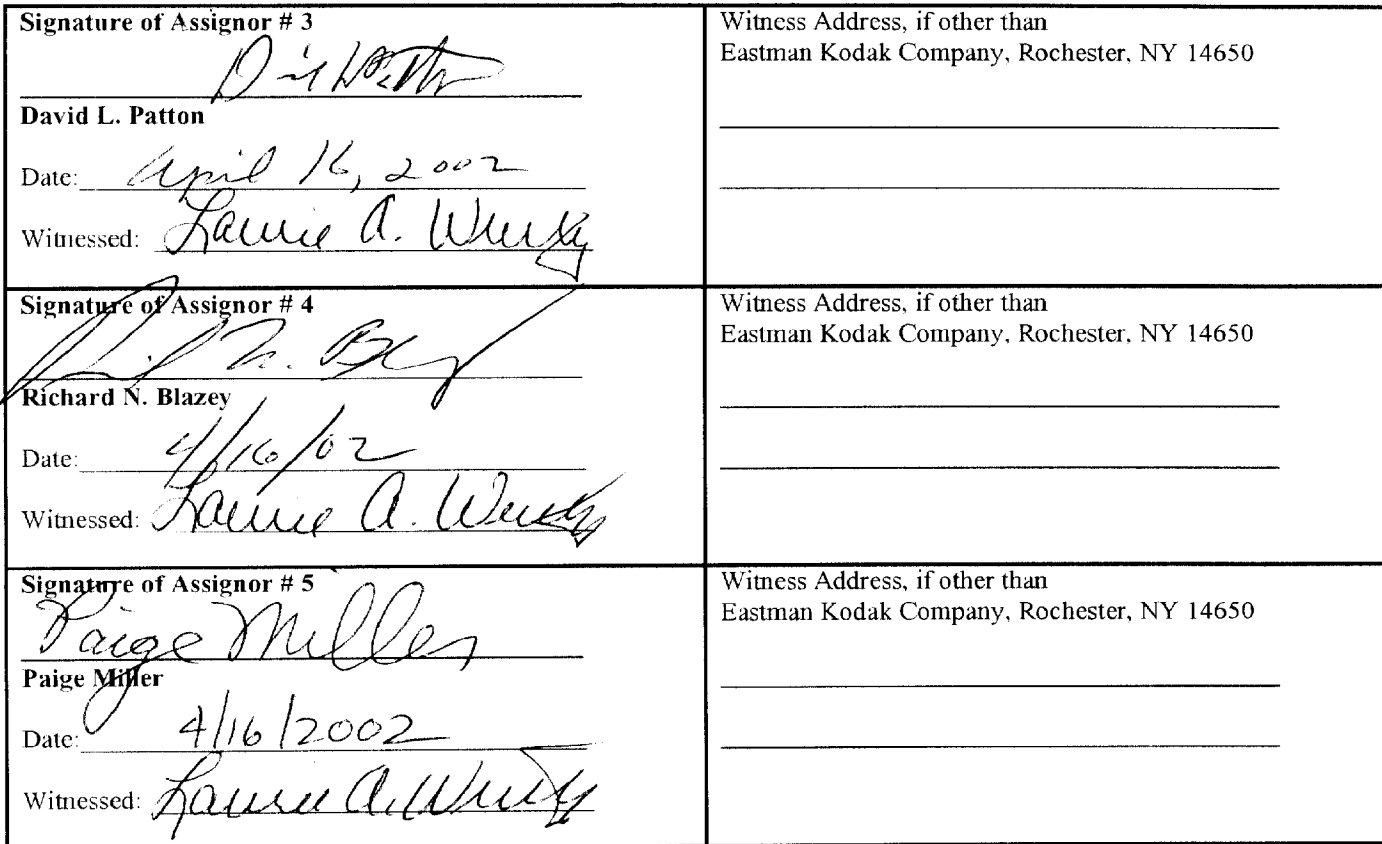 Signature of Assignor # 3
David L. Patton
Date: April 16, 2002
Witnessed: Laurie A.
Witness Address, if other than
Eastman Kodak Company, Rochester, NY 14650
Signature of Assignor # 4
Richard N. Blazey
Date: 4/16/02
Witnessed: Laurie A.
Witness Address, if other than
Eastman Kodak Company, Rochester, NY 14650
Signature of Assignor # 5
Paige Miller
Paige Miller
Date: 4/16/2002
Witnessed: Laurie A.
Witness Address, if other than
Eastman Kodak Company, Rochester, NY 14650